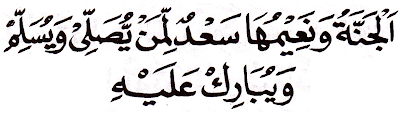 اَلْجَنَّةُ وَنَعِيْمُهَا سَعْدٌ لِّمَنْ يُّصَلِّيْ وَيُسَلِّمْ
وَيُبَارِكْ عَلَيْهِ